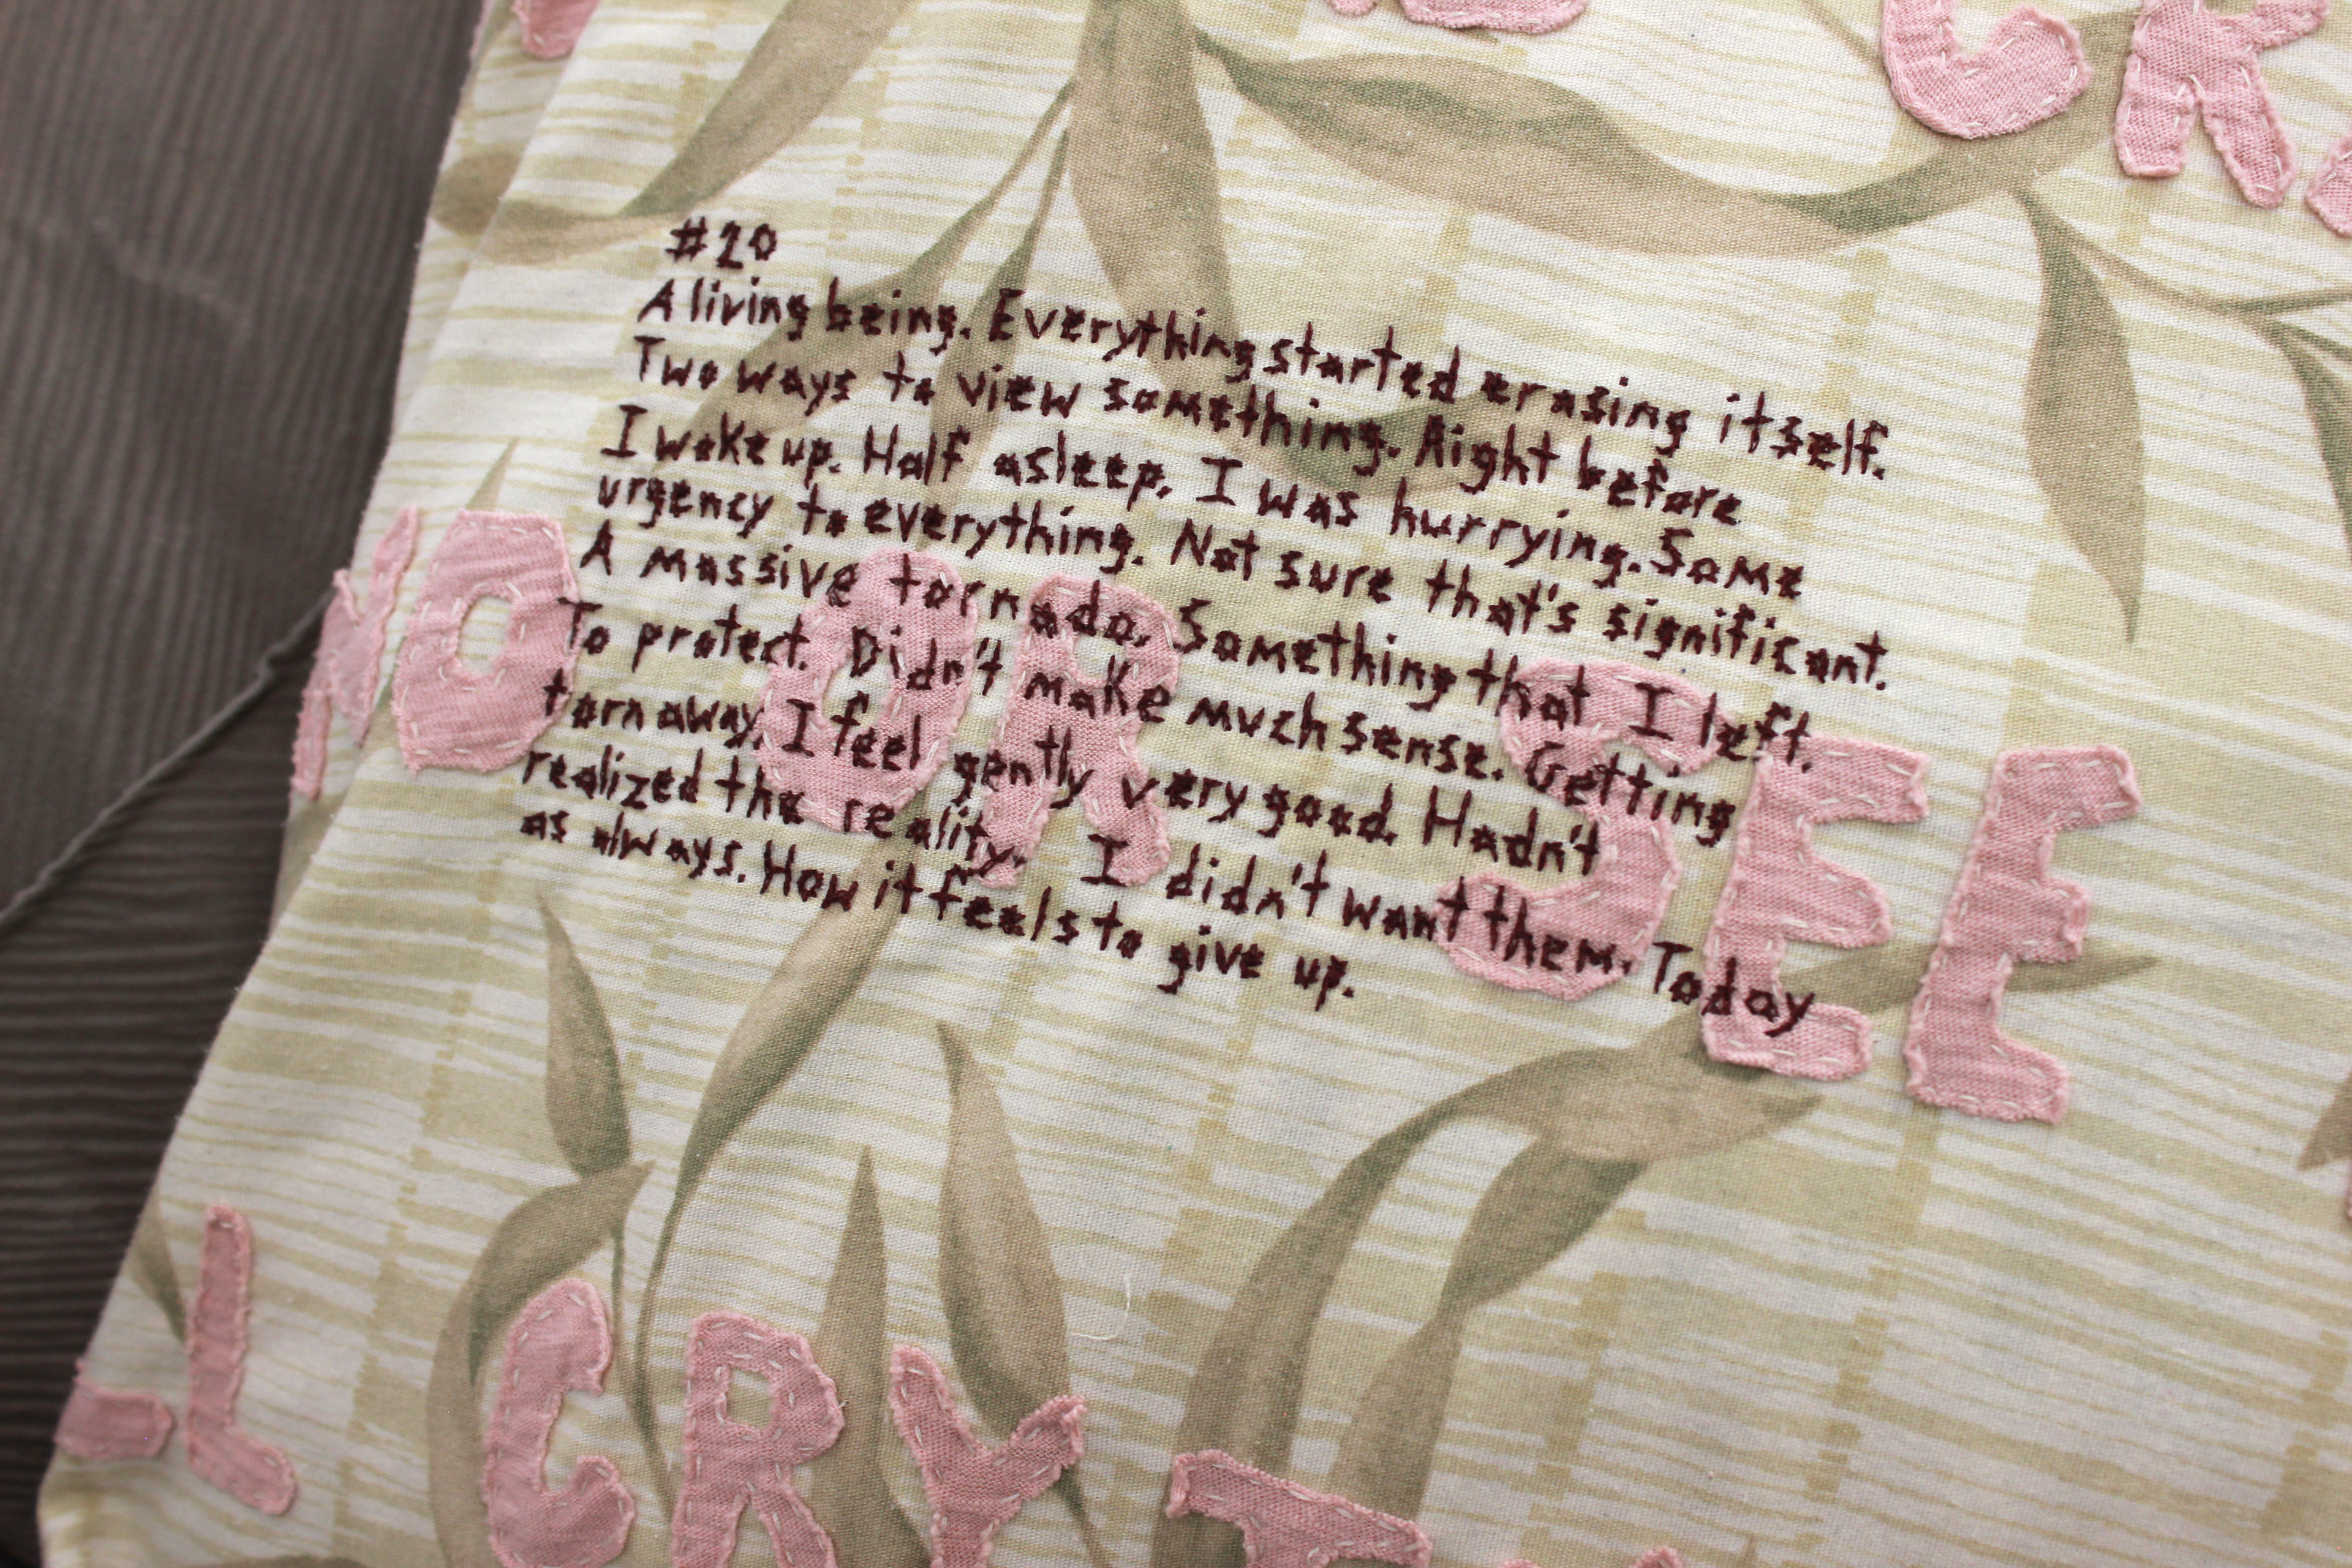 CK
#20
A living being. Everything started erasing itself.
Two ways to view something. Right before
I woke up. Half asleep, I was hurrying. Some
urgency to everything. Not sure that's significant.
A massive tornado. Something that I left.
To protect. Didn't make much sense. Getting
torn away. I feel gently very good. Hadn't
realized the reality. I didn't want them. Today
as always. How it feels to give up.
NO OR SEE
LL CRY T